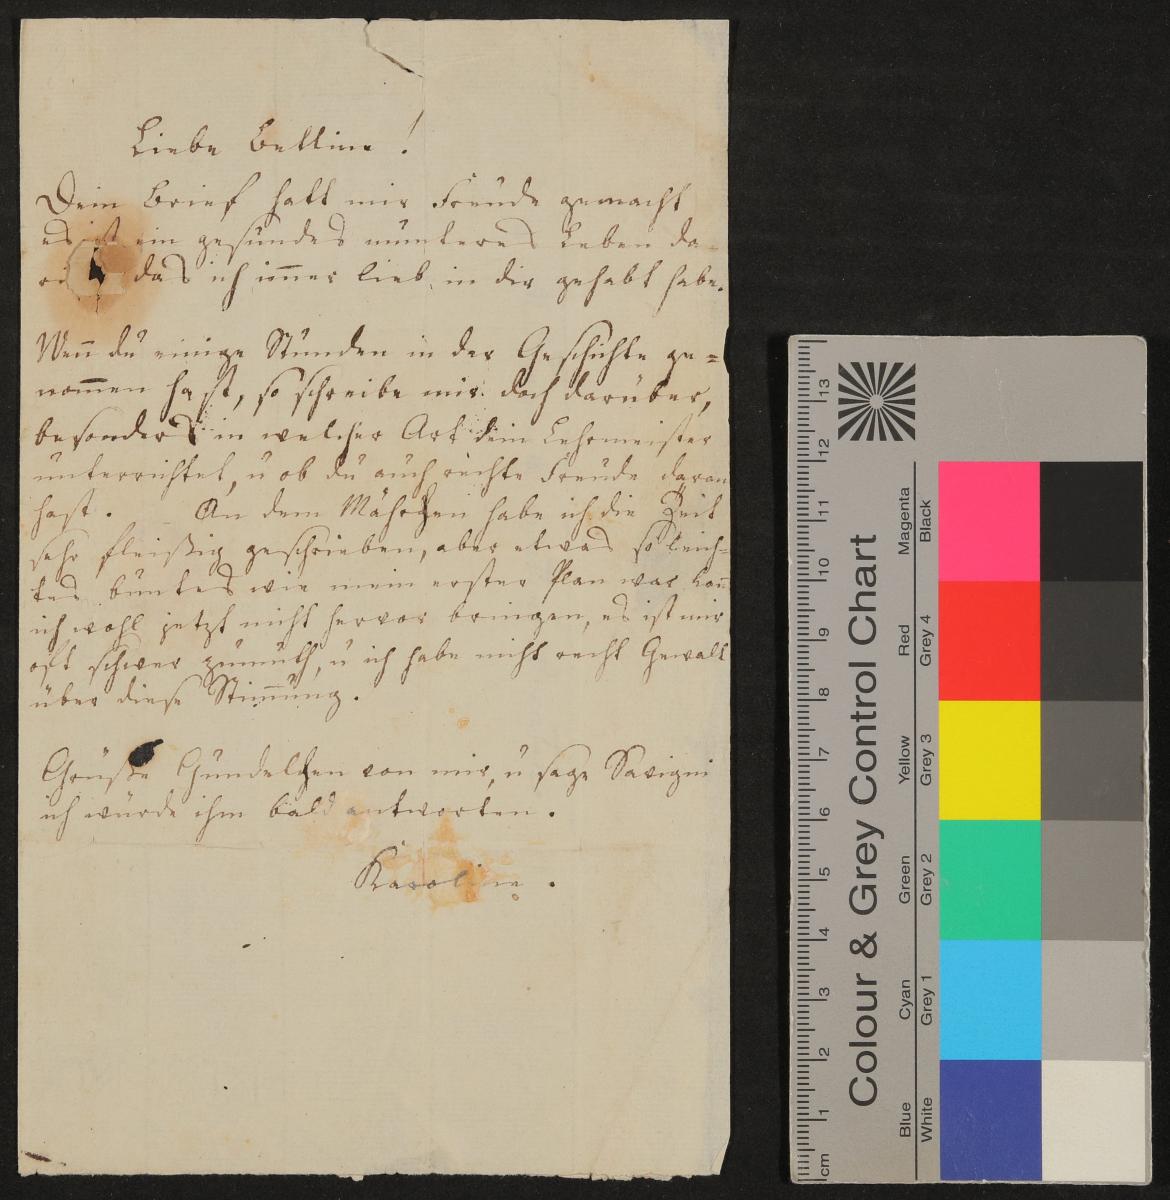 Liebe Bettine !
Dein Brief hatt mir Freude gemacht
es ist ein gesundes munteres Leben da-
das ich im̅er lieb in dir gehabt habe.
Wen̅ du einige Stunden in der Geschichte ge=
nom̅en hast, so schreibe mir doch darüber,
besonders in welcher Art dein Lehrmeister
unterrichtet, u ob du auch rechte Freude daran
hast. An dem Mährchen habe ich die Zeit
sehr fleißig geschrieben, aber etwas so leich=
tes buntes wie mein erster Plan war kan̅
ich wohl jetzt nicht hervor bringen, es ist mir
oft schwer zumuth, u ich habe nicht recht Gewalt
über diese Stim̅ung.
Grüße Gundelchen von mir, u sage Savigni
ich würde ihm bald antworten.
Karoline.
Colour & Grey Control Chart
Blue Cyan Green Yellow Red Magenta
White Grey 1 Grey 2 Grey 3 Grey 4 Black
cm 1 2 3 4 5 6 7 8 9 10 11 12 13